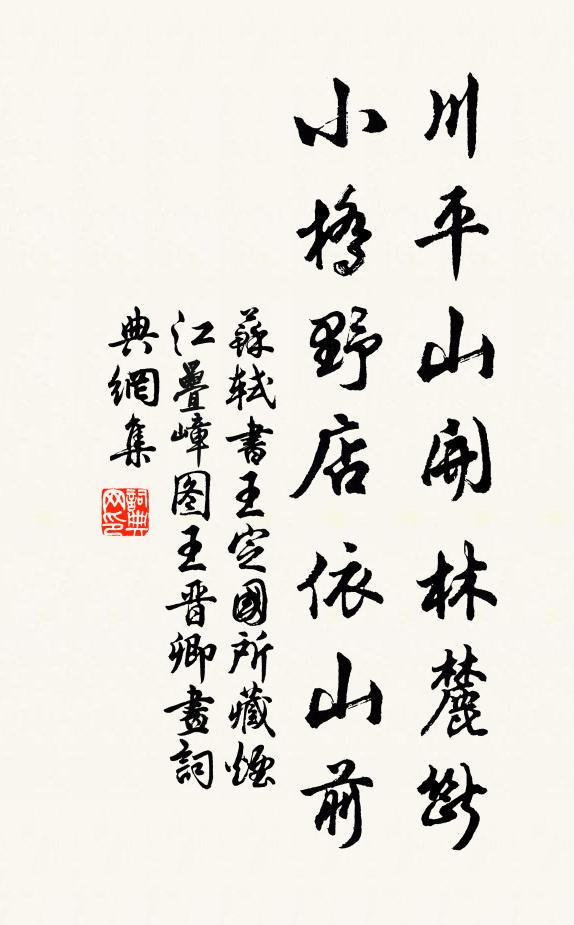 川平山開林麓斷
小橋野店依山前
蘇軾書王定國所藏煙
江疊嶂图王晉卿畫詞
典網集
詞典网印